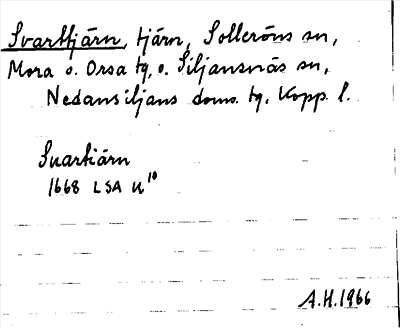 Svarttjärn, tjärn, Solleröns sn,
Mora o. Orsa tg, o. Siljansnäs sn,
Nedansiljans doms. tg. Kopp. l.
Suartiärn
1668 LSA U¹⁰
A.H. 1966